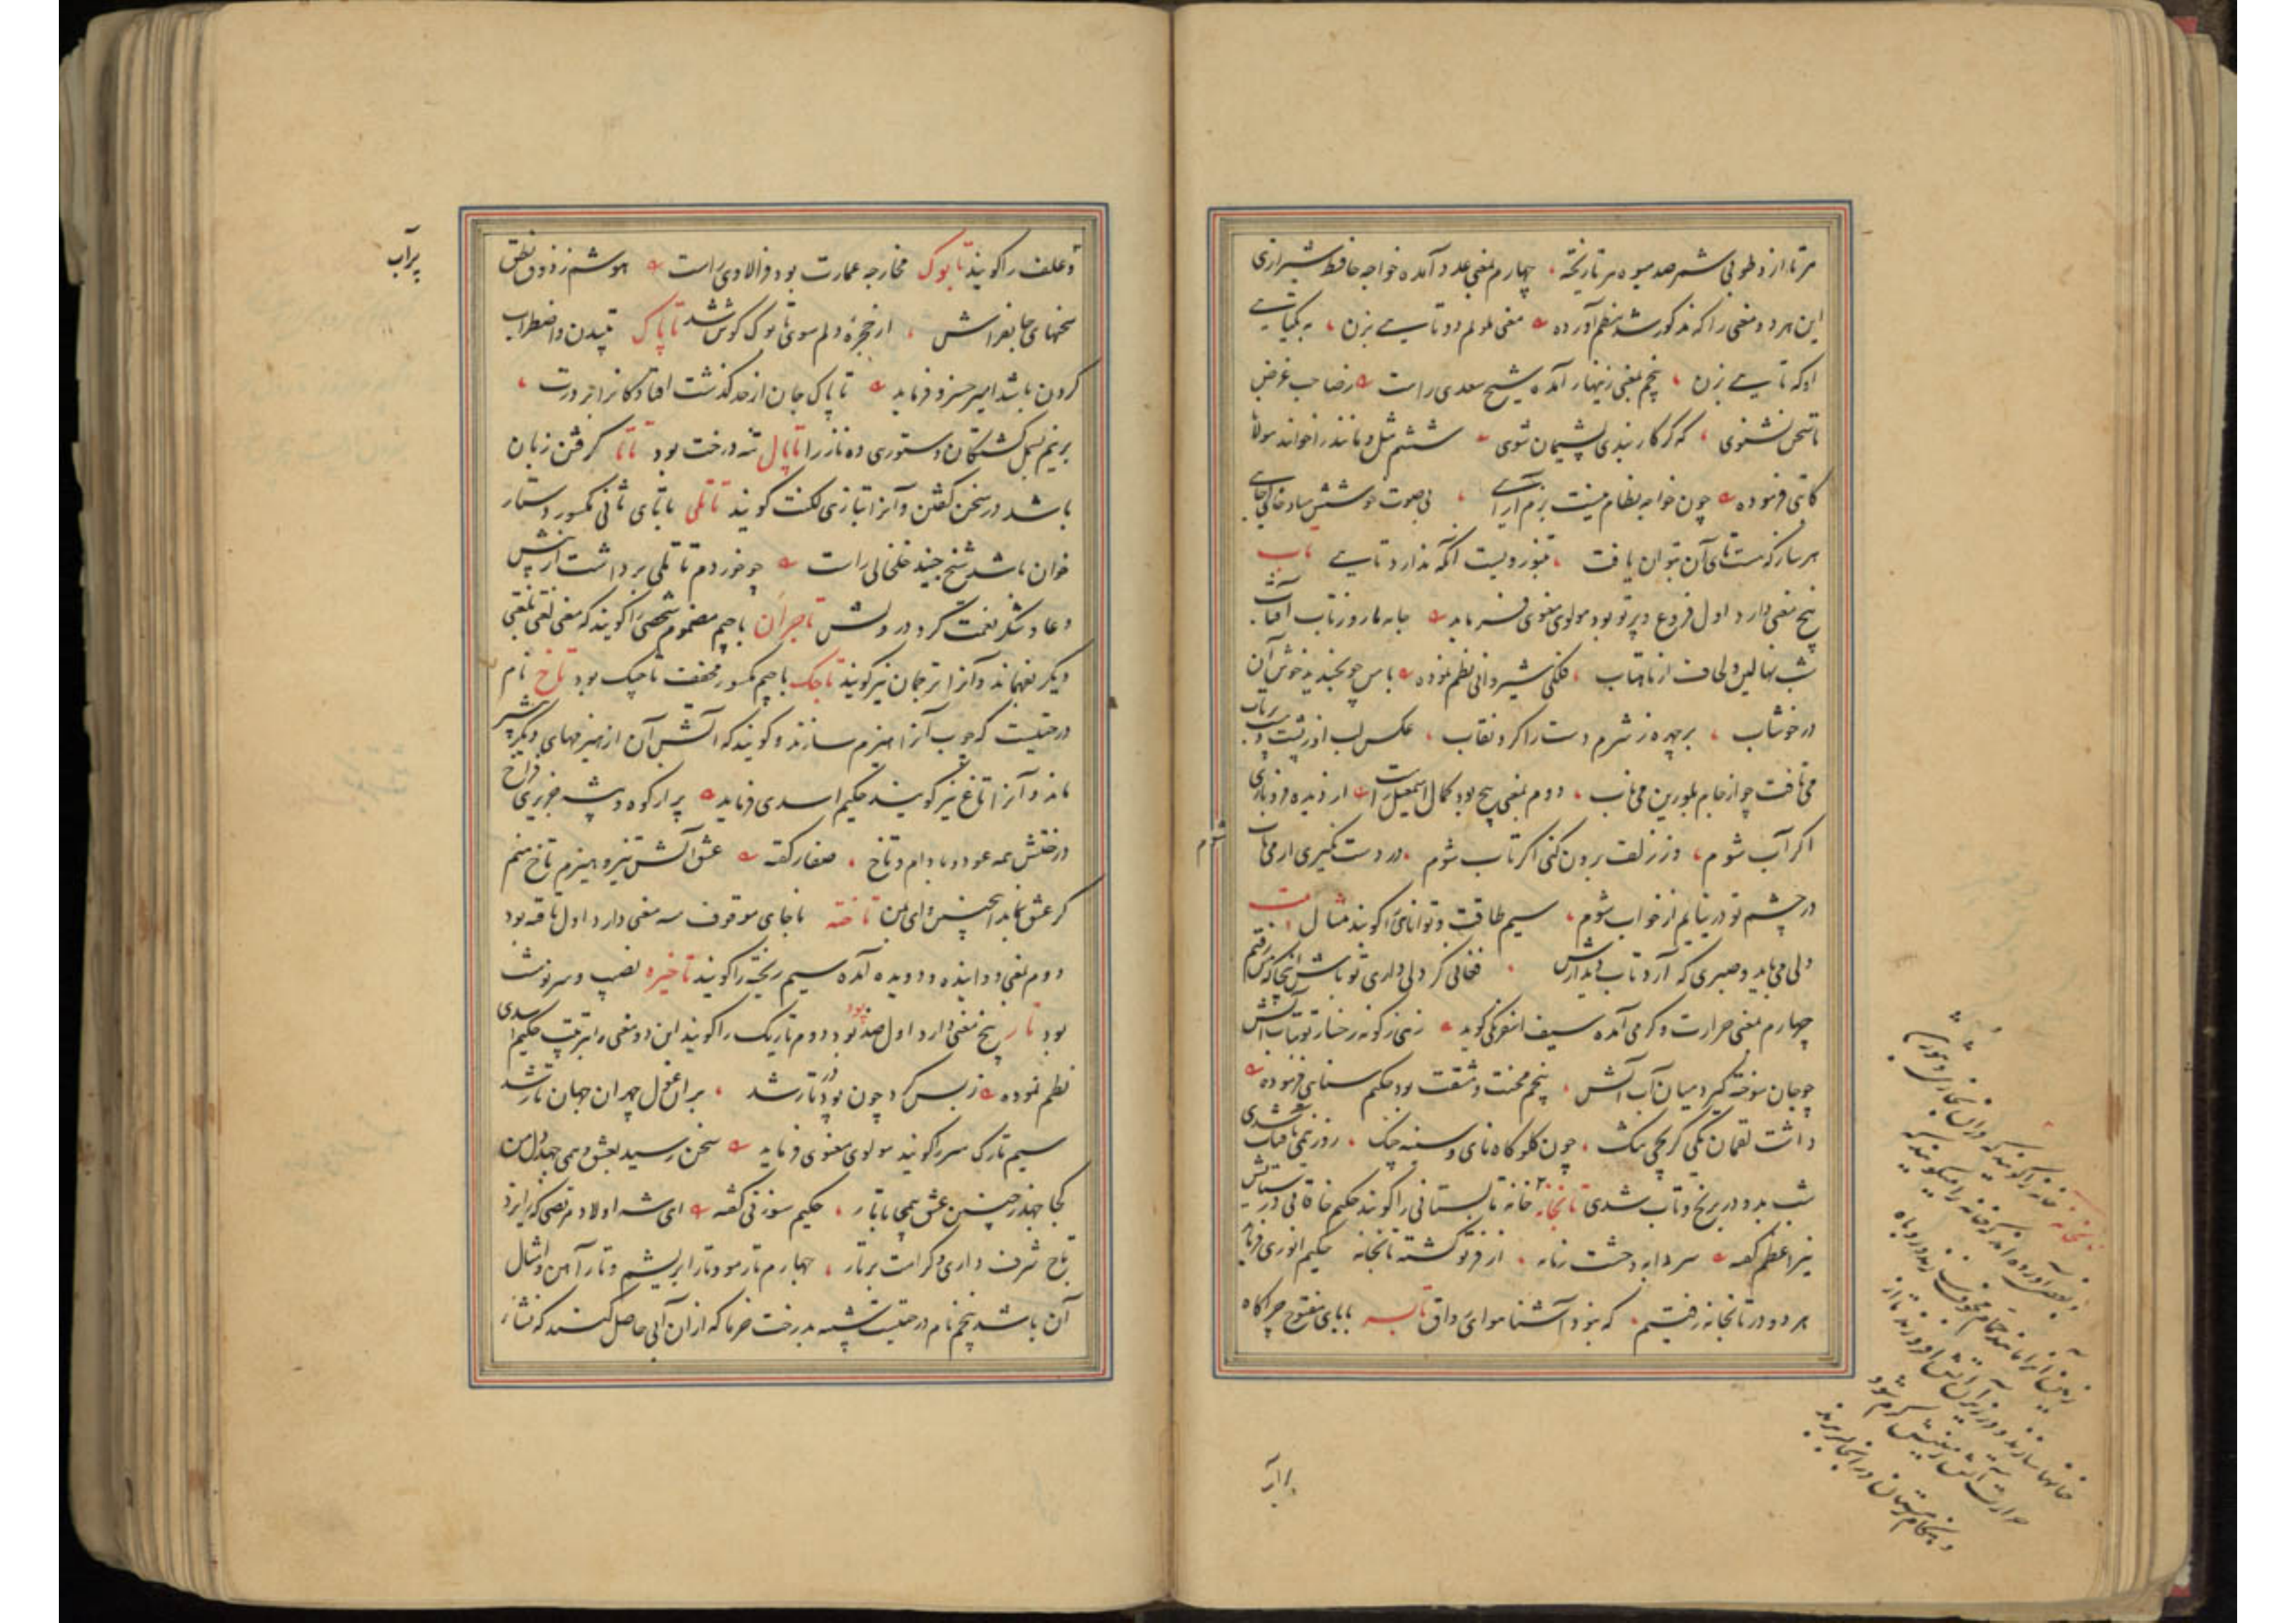 هر تار از و طوبی شمر صد میوه هر تار نخه، چهارم بمعنی عدد آمده خواجه حافظ شیرازی
این هر دو معنی را که مذکور شد بنظم آورده مغنی ملولم دو تایی بزن، به یکتایی
او که تایی بزن، پنجم بمعنی زینهار آمده شیخ سعدی راست ز صاحب غرض
تا سخن نشنوی، که گر کار بندی پشیمان شوی ششم مثل و مانند را خوانند مولانا
کاتبی فرموده چون خواجه نظام نیست بزم آرایی، بی صوت خوشش مباد خالی جایی
هر ساز که هست تای آن بتوان یافت، تنبوره ویست آنکه ندارد تایی تاب
پنج معنی دارد اول فروغ و پرتو بود مولوی معنوی فرماید جامه ما روز تاب آفتاب
شب نهالین و لحاف از ماهتاب، فلکی شیروانی نظم نموده با من چو بخندید خوش آن
در خوشاب، بر چهره ز شرم دست را کرد نقاب، عکس لب او ز پشت دست پرتاب
می تافت چو از جام بلورین می ناب، دوم بمعنی پیچ بود کمال اسمعیل راست از دیده فرو باری
اگر آب شوم، وز زلف برون کنی اگر تاب شوم، در دست نگیری ار می ناب شوم
در چشم تو در نیایم ار خواب شوم، سیم طاقت و توانائی را گویند مثال
دلی می باید و صبری که آرد تاب دیدارش، فغانی گر دلی داری تو باش اینجا که من رفتم
چهارم بمعنی حرارت و گرمی آمده سیف اسفرنگی گوید زهی ز گونه رخسار تو بتاب آتش
چو جان سوخته گیرد میان آب آتش، پنجم محنت و مشقت بود حکیم سنائی فرموده
داشت لقمان یکی کریچی تنگ، چون گلوگاه نای و سینه چنگ، روز نیمی بآفتاب شدی
شب بدو در برنج و تاب شدی تابخانه خانه تابستانی را گویند حکیم خاقانی در ستایش
نیر اعظم گفته سردابه وحشت زمانه، از فر تو گشته تابخانه حکیم انوری فرماید
هر دو در تابخانه رفتیم، که نبود آشنا هوای وثاق تابه بابای مفتوح چراگاه
و علف را گویند تابوک مخارجه عمارت بود فرالاوی راست هوشم ز ذوق نطق
سخنهای جانفزاش، از حجره دلم سوی تابوک گوش شد تاپاک تپیدن و اضطراب
کردن باشد امیر خسرو فرماید تاپاک جان از حد گذشت افتادگانرا بر درت،
بر نیم بسمل کشتگان دستوری ده ناز را تاپال تنه درخت بود تاتا گرفتن زبان
باشد در سخن گفتن و آنرا بتازی لکنت گویند تاتلی با تای ثانی مکسور دستار
خوان باشد شیخ جنید خلخالی راست چو خوردم تاتلی برداشت از پیش
دعا و شکر نعمت کرد درویش تاجران با جیم مضموم شخصی را گویند که معنی لغتی بلغتی
دیگر بفهماند و آنرا ترجمان نیز گویند تاجک با جیم مکسور مخفف تاجیک بود تاخ نام
درختیست که چوب آنرا هیزم سازند و گویند که آتش آن از هیزمهای دیگر بیشتر
ماند و آنرا تاغ نیز گویند حکیم اسدی فرماید پر از کوه و بیشه جزیری فراخ
درختش همه عود و بادام و تاخ، صفار گفته عشق آتش تیز و هیزم تاخ منم
گر عشق نماند اینچنین وای من تاخته با خای موقوف سه معنی دارد اول تافته بود
دوم بمعنی دوانیده و دویده آمده سیم ریخته را گویند تاخیره نصیب و سرنوشت
بود تار پنج معنی دارد اول ضد پود بود دوم تاریک را گویند این دو معنی را بترتیب حکیم اسدی
نظم نموده ز بس گرد چون پود و تار شد، بر آن غول چهران جهان تار شد
سیم تارک سر را گویند مولوی معنوی فرماید سخن رسید بعشق و همی جهد دل من
کجا جهد ز چنین عشق همچو ما بتار، حکیم سوزنی گفته ای شه اولاد مرتضی که ز ایزد
تاج شرف داری و کرامت بر تار، چهارم تار مو و تار ابریشم و تار آهن و امثال
آن باشد پنجم نام درختیست شبیه بدرخت خرما که از آن آبی حاصل کنند که نشاء